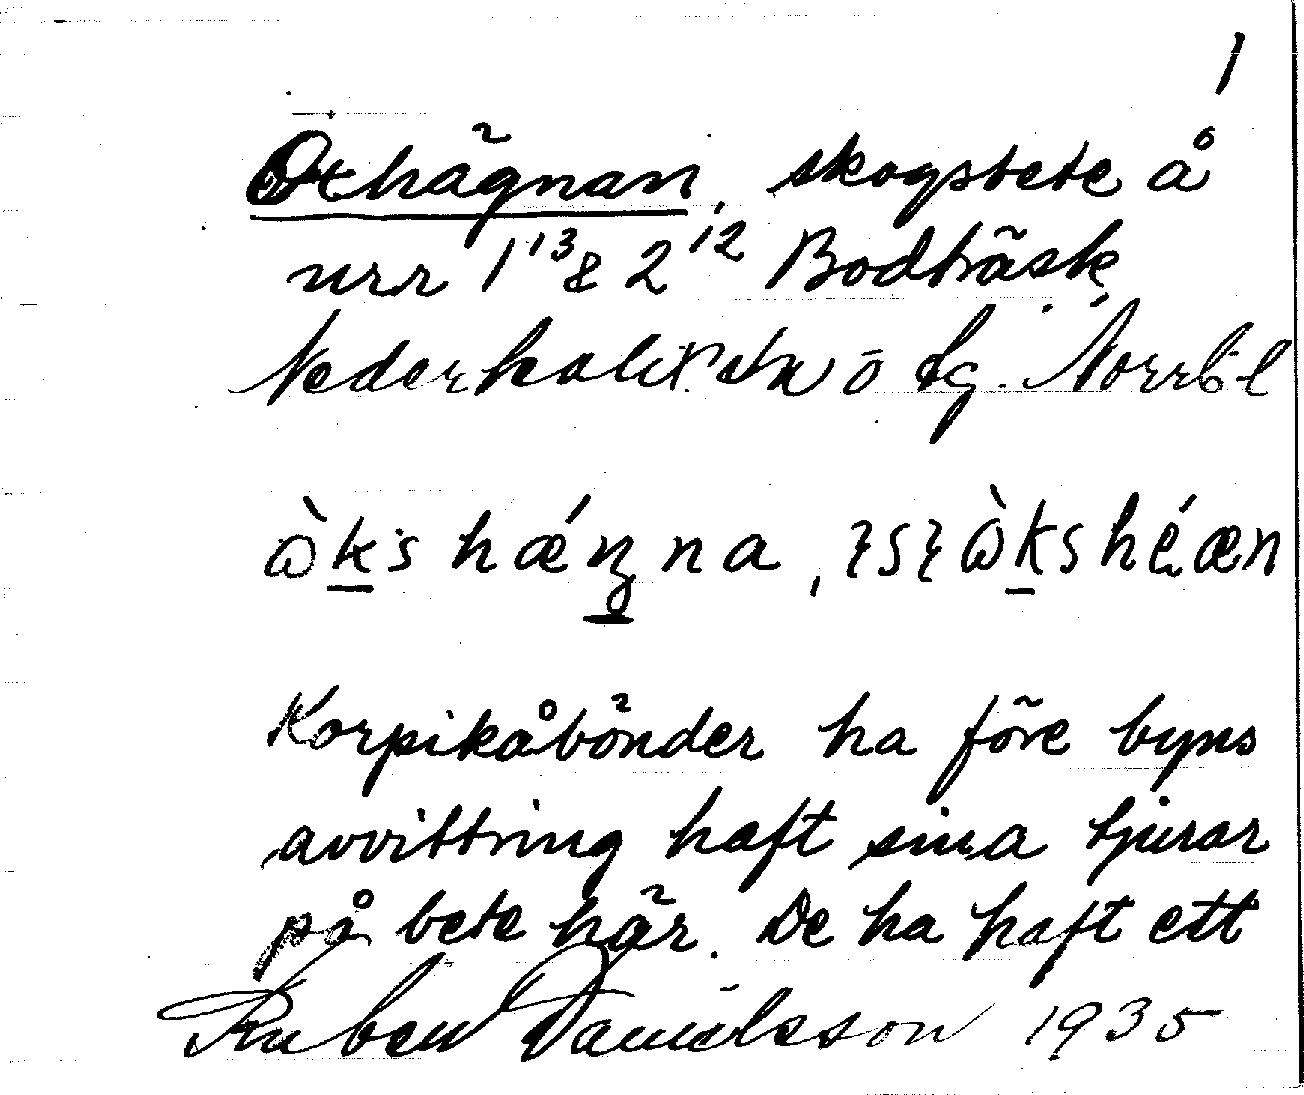 1
Oxhägnan, skogsbete å
nrr 1¹³ & 2¹² Bodträsk,
Nederkalix sn ö tg. Norrb. l
ὼk̲s hǽn̲na, ὼk̲s héæn
Korpikåbönder ha före byns
avvittring haft sina tjurar
på bete här. De ha haft ett
Ruben Danielsson 1935